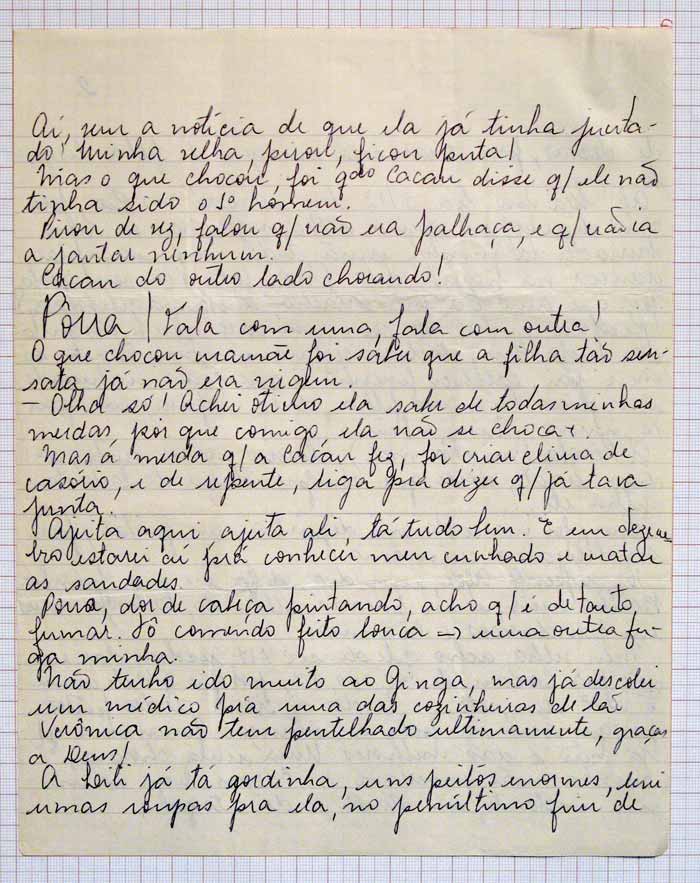 Aí, vem a notícia de que ela já tinha junta-
do! Minha velha, pirou, ficou puta!
Mas o que chocou, foi qdo Cacau disse q/ ele não
tinha sido o 1º homem.
Pirou de vez, falou q/ não era palhaça, e q/ não ia
a jantar nenhum.
Cacau do outro lado chorando!
Pôrra! Fala com uma, fala com outra!
O que chocou mamãe foi saber que a filha tão sen-
sata, já não era virgem.
- Olha só! Achei ótimo ela saber de todas minhas
merdas, por que comigo, ela não se choca +.
Mas a merda q/ a Cacau fez, foi criar clima de
casório, e de repente, liga pra dizer q/ já tava
junta.
Ajeita aqui, ajeita ali, tá tudo bem. E em dezem-
bro estarei aí prá conhecer meu cunhado e matar
as saudades.
Porra, dor de cabeça pintando, acho q/ é de tanto
fumar. Tô comendo feito louca → uma outra fu-
ga minha.
Não tenho ido muito ao Ginga, mas já descolei
um médico pra uma das cozinheiras de lá
Verônica não tem pentelhado ultimamente, graças
a Deus!
A já tá gordinha, uns peitos enormes, levei
umas roupas pra ela, no penúltimo fim de